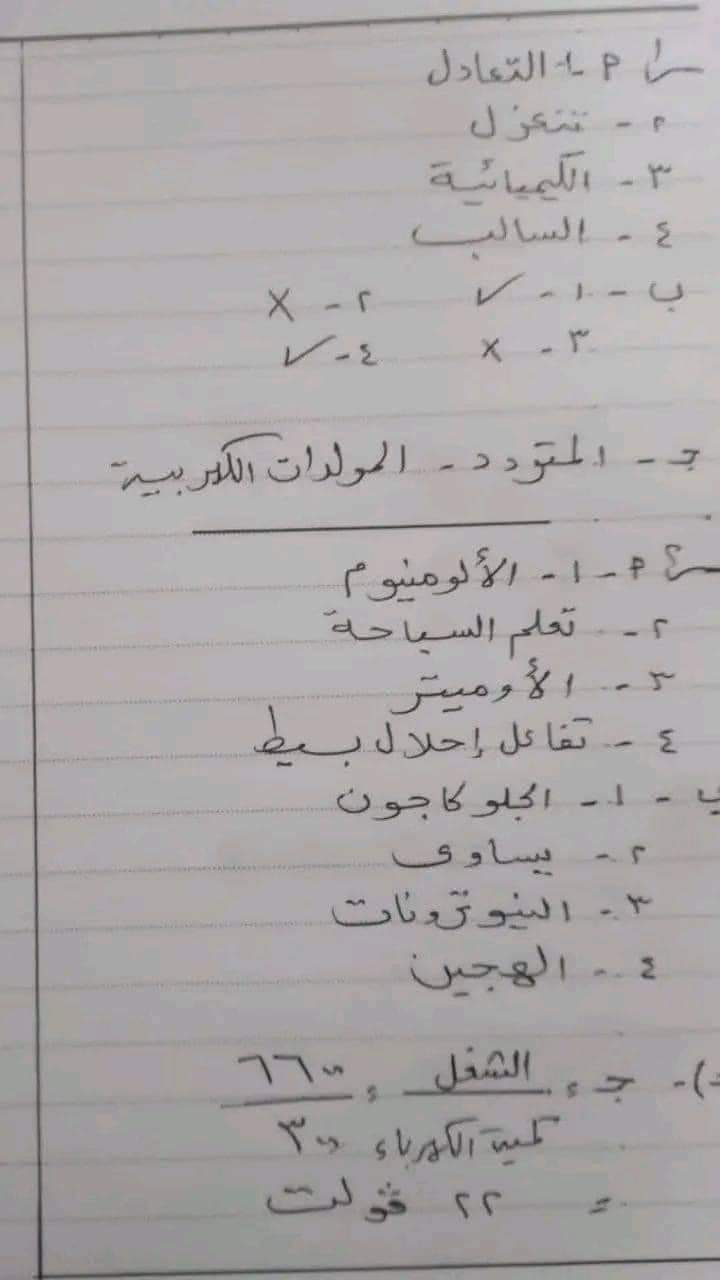 س١ ٢ ١- التعادل
٢ - تنعزل
٣ - الكيميائية
٤ - السالب
ب - ١ - ✓ ٢ - X
٣ - X ٤ - ✓
جـ - المتردد - المولدات الكهربية
س٢ ٢ - ١ - الألومنيوم
٢ - تعلم السباحة
٣ - الأوميتر
٤ - تفاعل إحلال بسيط
ب - ١ - الجلوكاجون
٢ - يساوى
٣ - النيوترونات
٤ - الهجين
جـ = الشغل / كمية الكهرباء = ٦٦٠٠ / ٣٠٠
= ٢٢ ڤولت